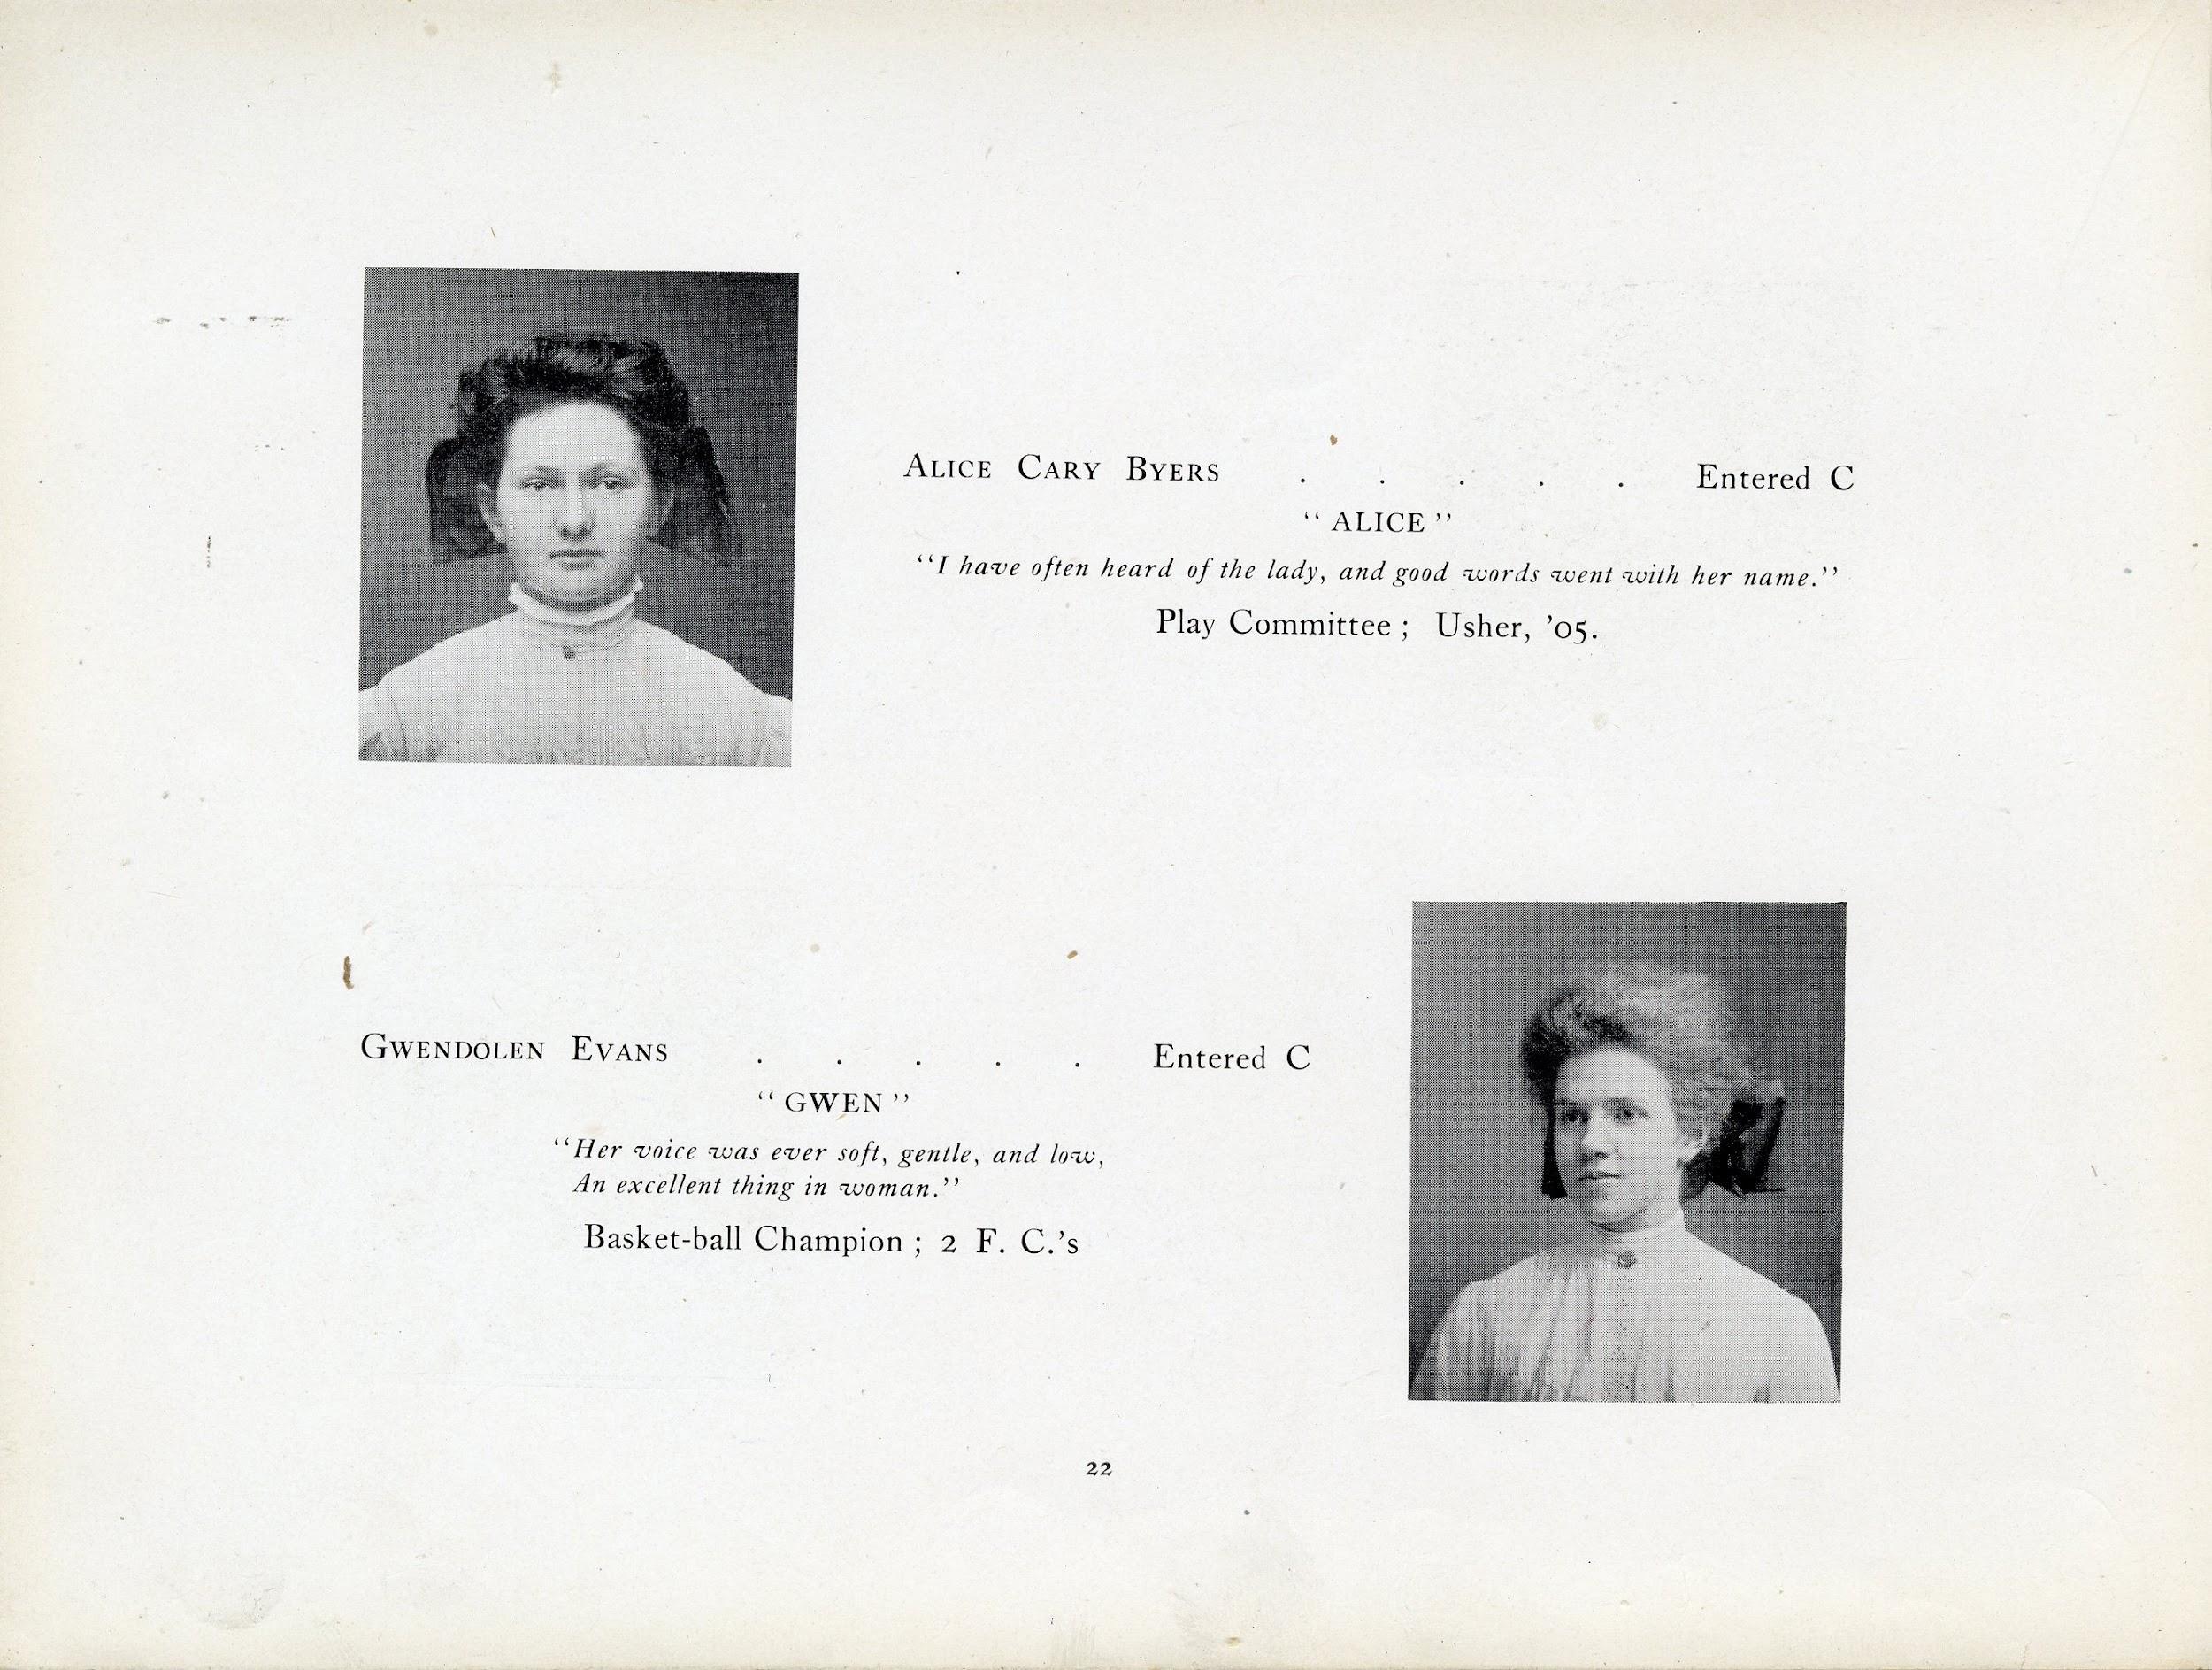 ALICE CARY BYERS . . . . . Entered C
“ ALICE ”
“I have often heard of the lady, and good words went with her name.”
Play Committee ; Usher, ’05.
GWENDOLEN EVANS . . . . . Entered C
“ GWEN ”
“Her voice was ever soft, gentle, and low,
An excellent thing in woman.”
Basket-ball Champion ; 2 F. C.’s
22